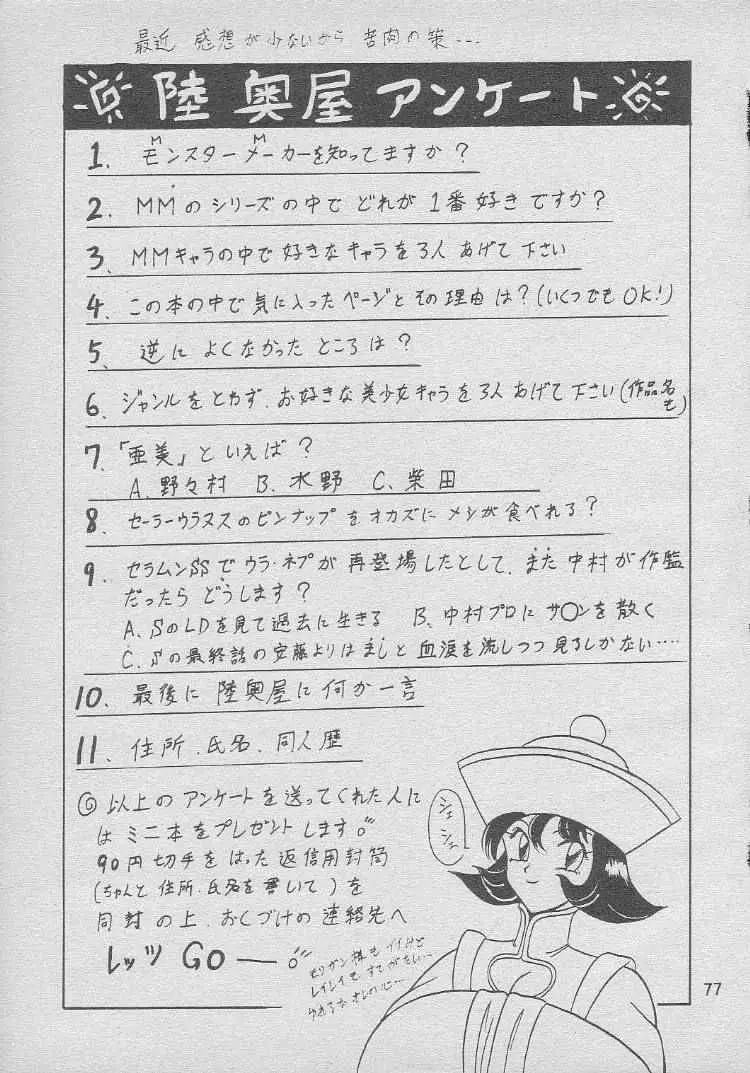 最近 感想が少ないから 苦肉の策---
陸奥屋アンケート
1. モンスターメーカーを知ってますか?
M M
2. MMのシリーズの中で どれが 1番好きですか?
3. MMキャラの中で 好きなキャラを3人 あげて下さい
4. この本の中で 気に入ったページと その理由は?(いくつでも OK!)
5. 逆に よくなかった ところは?
6. ジャンルをとわず、お好きな美少女キャラを3人 あげて下さい(作品名も)
7. 「亜美」といえば?
A. 野々村 B. 水野 C. 柴田
8. セーラーウラヌスのピンナップを オカズに メシが食べれる?
9. セラムンSSで ウラ・ネプが 再登場したとして、また 中村が 作監
だったら どうします?
A. SのLDを見て過去に生きる B. 中村プロに サ〇ンを散く
C. Sの最終話の安藤よりは ましと 血涙を流しつつ 見るしかない‥‥
10. 最後に 陸奥屋に 何か一言
11. 住所、氏名、同人歴
◎以上の アンケートを 送ってくれた人に
は ミニ本を プレゼント します
90円切手を はった 返信用封筒
(ちゃんと 住所・氏名を書いて)を
同封の上、おくづけの 連絡先へ
レッツ GO―
シェ
シェ
モリガン様も イイけど
レイレイも すてがたい…
77